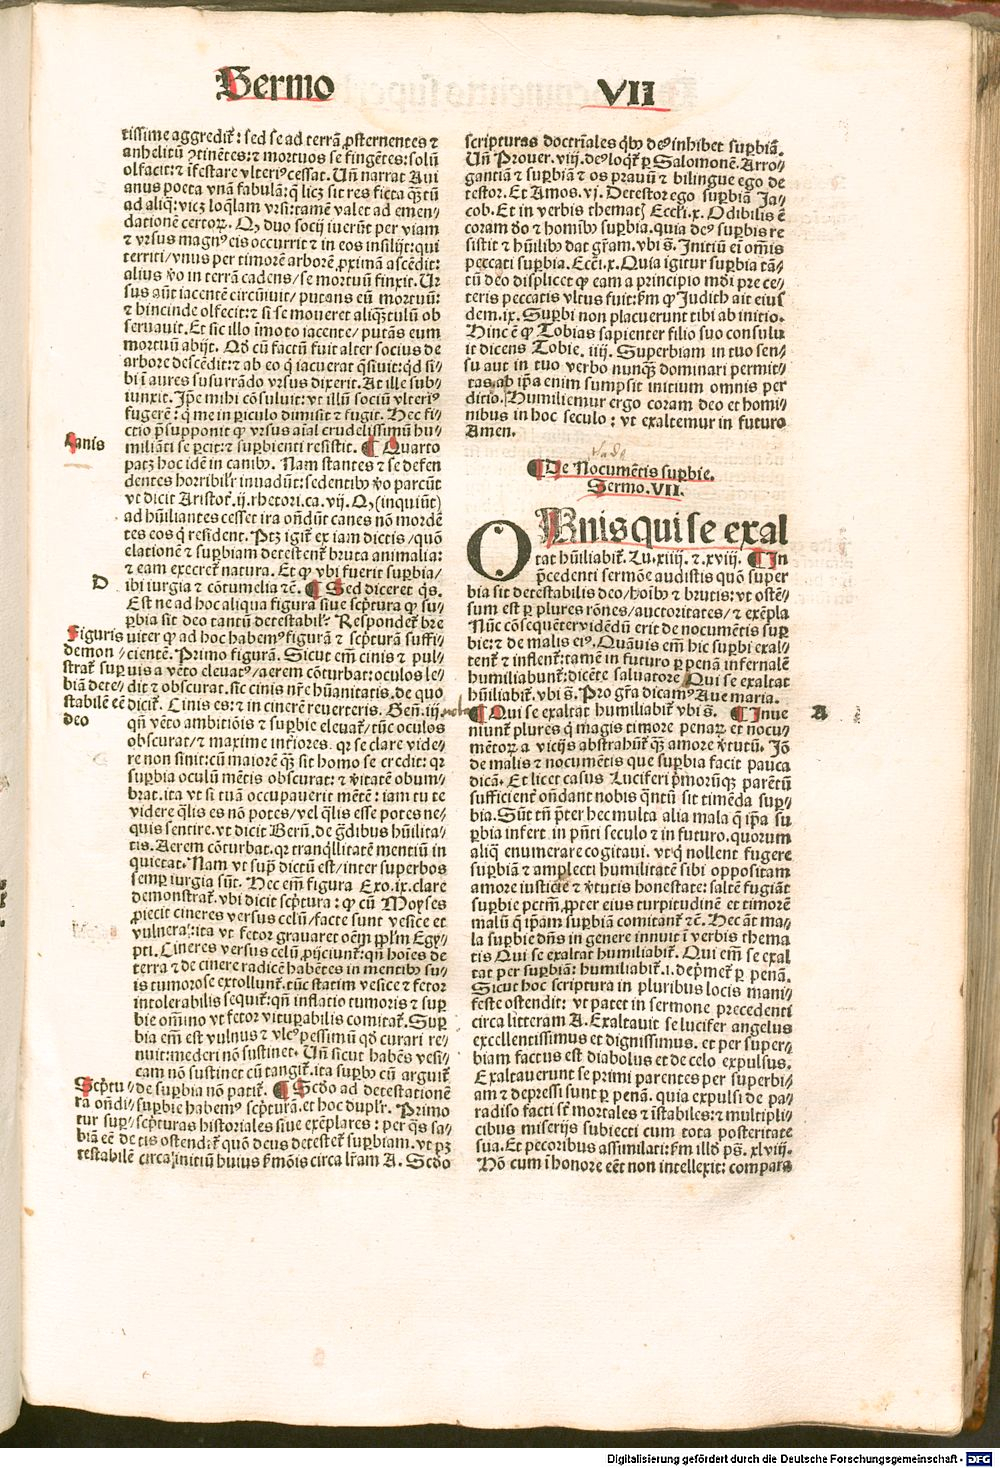 Sermo
VII
tissime aggredit᷑: sed se ad terrã ꝓsternentes ⁊
anhelitũ ꝯtinẽtes: ⁊ mortuos se fingẽtes: solũ
olfacit: ⁊ ĩfestare vlteriꝰ cessat. Uñ narrat Aui
anus poeta vnã fabulã: q̃ licꝫ sit res ficta q̃tũ
ad aliq̃: vicꝫ loq̃lam vrsi: tamẽ valet ad emen/
dationẽ certoꝝ. Qꝫ duo socij iuerũt per viam
⁊ vrsus magnꝰ eis occurrit ⁊ in eos insilijt: qui
territi/ vnus per timorẽ arborẽ ꝓximã ascẽdit:
alius ꝟo in terrã cadens/ se mortuũ finxit. Ur
sus aũt iacentẽ circũiuit/ putans eũ mortuũ:
⁊ hincinde olfecit: ⁊ si se moueret aliq̃tulũ ob
seruauit. Et sic illo ĩmoto iacente/ putãs eum
mortuũ abijt. Qď cũ factũ fuit alter socius de
arbore descẽdit: ⁊ ab eo q̃ iacuerat q̃siuit: qd si/
bi ĩ aures susurrãdo vrsus dixerit. At ille sub/
iunxit. Ip̃e mihi cõsuluit: vt illũ sociũ vlteriꝰ
fugerẽ: q̃ me in ꝑiculo dimisit ⁊ fugit. Hec fi/
ctio p̃supponit ꝙ vrsus aĩal crudelissimũ hu/
miliãti se ꝑcit: ⁊ suꝑbienti resistit. ¶ Quarto
patꝫ hoc idẽ in canibꝰ. Nam stantes ⁊ se defen
dentes horribilꝛ inuadũt: sedentibꝰ ꝟo parcũt
vt dicit Aristot᷑. ij. rhetori. ca. vij. Qꝫ (inquiũt)
ad hũiliantes cesset ira oñdũt canes nõ mordẽ
tes eos q̃ resident. Ptꝫ igit᷑ ex iam dictis/ quõ
elationẽ ⁊ suꝑbiam detestent᷑ bruta animalia:
⁊ eam execret᷑ natura. Et ꝙ vbi fuerit suꝑbia/
ibi iurgia ⁊ cõtumelia ⁊c̃. ¶ Sed diceret q̃s.
Est ne ad hoc aliqua figura siue scp̃tura ꝙ su/
ꝑbia sit deo tantũ detestabilꝛ. Respondet᷑ bre
uiter ꝙ ad hoc habemꝰ figurã ⁊ scp̃turã suffi/
cientẽ. Primo figurã. Sicut em̃ cinis ⁊ pul/
uis a vẽto eleuatꝰ/ aerem cõturbat: oculos le/
dit ⁊ obscurat. sic cinis nr̃e hũanitatis, de quo
dicit᷑. Cinis es: ⁊ in cinerẽ reuerteris. Geñ. iij.
qñ vẽto ambitiõis ⁊ suꝑbie eleuat᷑/ tũc oculos
obscurat/ ⁊ maxime inťiores. qꝛ se clare vide/
re non sinit: cũ maiorẽ q̃ sit homo se credit: qꝛ
suꝑbia oculũ mẽtis obscurat: ⁊ ꝟitatẽ obum/
brat. ita vt si tuã occupauerit mẽtẽ: iam tu te
videre q̃lis es nõ potes/ vel q̃lis esse potes ne/
quis sentire. vt dicit Berñ. de g̃dibus hũilita/
tis. Aerem cõturbat. qꝛ tranq̃llitatẽ mentiũ in
quietat. Nam vt supᷓ dictũ est/ inter superbos
semꝑ iurgia sũt. Hec em̃ figura Exo. ix. clare
demonstrat᷑. vbi dicit scp̃tura: ꝙ cũ Moyses
ꝓiecit cineres versus celũ/ facte sunt vesice et
vulnera: ita vt fetor grauaret oẽm ppl̃m Egy/
pti. Cineres versus celũ ꝓijciunt: qñ hoĩes de
terra ⁊ de cinere radicẽ habẽtes in mentibꝰ su/
is tumorose extollunt᷑. tũc statim vesice ⁊ fetor
intolerabilis sequit᷑: qñ inflatio tumoris ⁊ suꝑ
bie om̃ino vt fetor vituꝑabilis comitat᷑. Suꝑ
bia em̃ est vulnus ⁊ vlcꝰ pessimũ qď curari re/
nuit: mederi nõ sustinet. Uñ sicut habẽs vesi/
cam nõ sustinet cũ tangit᷑. ita suꝑbꝰ cũ arguit᷑
de suꝑbia nõ patit᷑. ¶ Scďo ad detestationẽ
suꝑbie habemꝰ scp̃turã. et hoc duplꝛ. Primo
scp̃turas historiales siue exẽplares: per q̃s sa/
tis ostendit᷑ quõ deus detestet᷑ suꝑbiam. vt pꝫ
circa initiũ huius ẜmõis circa lr̃am A. Scďo
Canis
D
Figuris
demon/
strat᷑ suꝑ
biã dete/
stabilẽ eẽ
deo
Scp̃tu/
ra oñdi/
tur suꝑ/
biã eẽ de
testabilẽ
scripturas doctrĩales q̃bꝰ deꝰ inhibet suꝑbiã.
Uñ Prouer. viij. deꝰ loq̃t᷑ ꝑ Salomonẽ. Arro/
gantiã ⁊ suꝑbiã ⁊ os prauũ ⁊ bilingue ego de
testor. Et Amos. vj. Detestor ego suꝑbiã Ja/
cob. Et in verbis themat̃ Eccl̃i. x. Odibilis ẽ
coram deo ⁊ homĩbꝰ suꝑbia. quia deꝰ suꝑbis re
sistit ⁊ hũilibꝰ dat gr̃am. vbi s̃. Initiũ eĩ om̃is
peccati suꝑbia. Eccl̃i. x. Quia igitur suꝑbia tã/
tũ deo displicet ꝙ eam a principio mũdi pre ce/
teris peccatis vltus fuit: ẜm ꝙ Judith ait eius
dem. ix. Suꝑbi non placuerunt tibi ab initio.
Hinc ẽ ꝙ Tobias sapienter filio suo consulu
it dicens Tobie. iiij. Superbiam in tuo sen/
su aut in tuo verbo nunq̃ dominari permit/
tas. ab ip̃a enim sumpsit initium omnis per
ditio. Humiliemur ergo coram deo et homi/
nibus in hoc seculo: vt exaltemur in futuro
Amen.
¶ De Nocumẽtis suꝑbie.
Sermo. VII.
OMnis qui se exal
tat hũiliabit᷑. Lu. xiiij. ⁊. xviij. ¶ In
p̃cedenti sermõe audistis quõ super
bia sit detestabilis deo/ hoĩbꝰ ⁊ brutis: vt ostẽ/
sum est ꝑ plures rõnes/ auctoritates/ ⁊ exẽpla
Nũc cõsequẽter vidẽdũ erit de nocumẽtis suꝑ
bie: ⁊ de malis eiꝰ. Quãuis em̃ hic suꝑbi exal/
tent᷑ ⁊ inflent᷑: tamẽ in futuro ꝑ penã infernalẽ
humiliabunt᷑: dicẽte saluatore. Qui se exaltat
hũiliabit᷑. vbi s̃. Pro gr̃a dicamꝰ Aue maria.
¶ Qui se exaltat humiliabit᷑ vbi s̃. ¶ Inue
niunt᷑ plures q̃ magis timore penaꝝ et nocu/
mẽtoꝝ a vicijs abstrahũt᷑ q̃ amore ꝟtutũ. Jõ
de malis ⁊ nocumẽtis que suꝑbia facit pauca
dicã. Et licet casus Luciferi p̃morũq̃ parẽtũ
sufficient᷑ oñdant nobis q̃ntũ sit timẽda suꝑ/
bia. Sũt tñ p̃ter hec multa alia mala q̃ ip̃a su
ꝑbia infert in pñti seculo ⁊ in futuro. quorum
aliq̃ enumerare cogitaui. vt q̃ nollent fugere
suꝑbiã ⁊ amplecti humilitatẽ sibi oppositam
amore iusticie ⁊ ꝟtutis honestate: saltẽ fugiãt
suꝑbie pctm̃, ꝓpter eius turpitudinẽ et timorẽ
malũ q̃ ip̃am suꝑbiã comitant᷑ ⁊c̃. Hec aũt ma/
la suꝑbie dñs in genere innuit ĩ verbis thema
tis Qui se exaltat humiliabit᷑. Qui em̃ se exal
tat per suꝑbiã: humiliabit᷑. i. dep̃met᷑ ꝑ penã.
Sicut hoc scriptura in pluribus locis mani/
feste ostendit: vt patet in sermone precedenti
circa litteram A. Exaltauit se lucifer angelus
excellentissimus et dignissimus. et per super/
biam factus est diabolus et de celo expulsus.
Exaltauerunt se primi parentes per superbi/
am ⁊ depressi sunt ꝑ penã. quia expulsi de pa/
radiso facti sũt mortales ⁊ ĩstabiles: ⁊ multipli/
cibus miserijs subiecti cum tota posteritate
sua. Et pecoribus assimilati: ẜm illď ps̃. xlviij.
Hõ cum ĩ honore eẽt non intellexit: compara
A
Digitalisierung gefördert durch die Deutsche Forschungsgemeinschaft - DFG